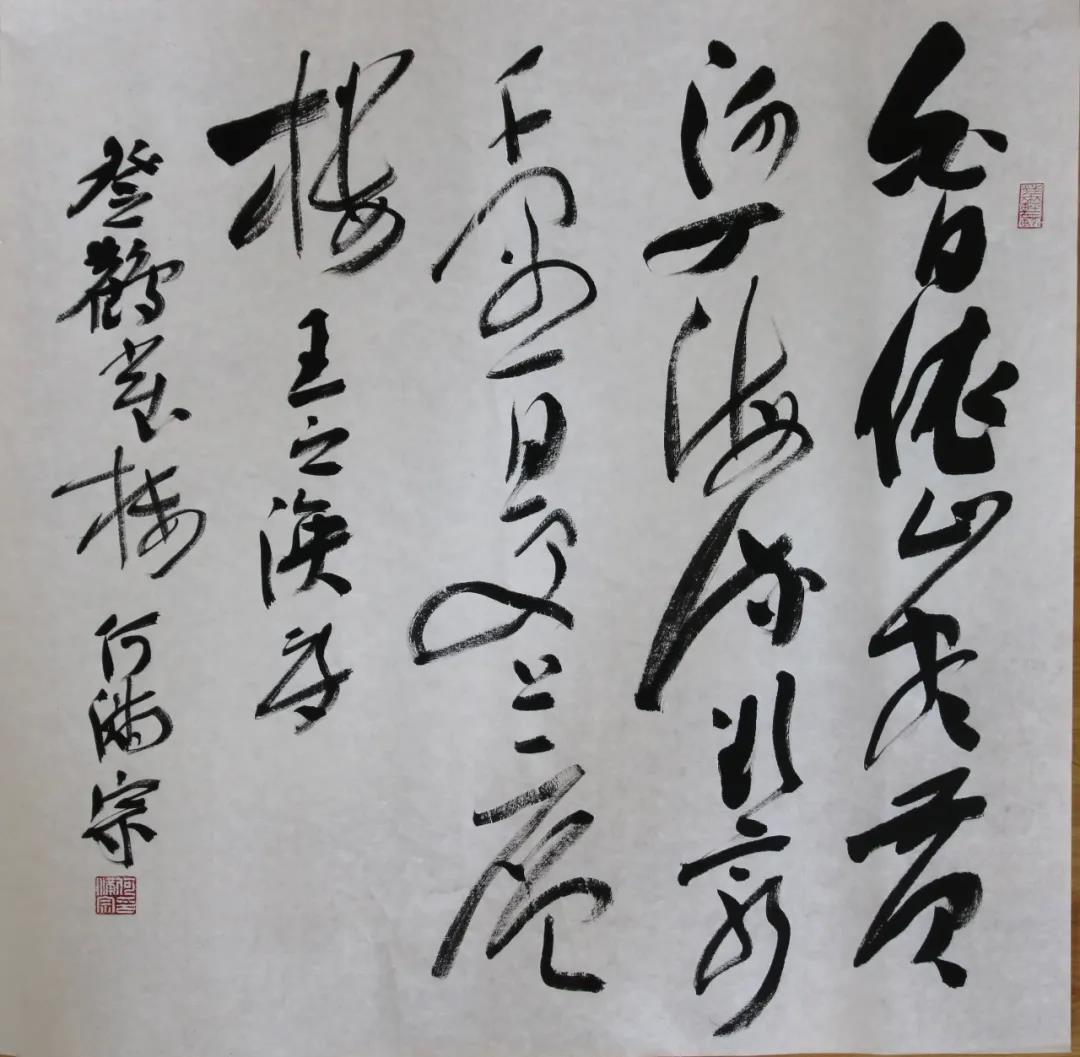 白日依山尽黄
河入海流欲穷
千里目更上一层
楼 王之涣诗
登鹳雀楼 何满宗